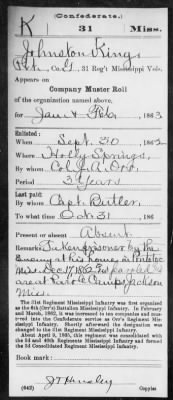 (Confederate.)
K 31 Miss.
Johnston King
Co. , 31 Reg't Mississippi Vols.
Appears on
Company Muster Roll
of the organization named above,
for Jan & Feb, 1863
Enlisted:
When Sept. 30, 1862
Where Holly Springs,
By whom Col. J. A. Orr,
Period 3 Years
Last paid:
By whom Capt. Butler,
To what time Oct 31, 186
Present or absent Absent
Remarks: Taken prisoner by the
Enemy at his home in Pontotoc
Miss. Dec. 17, 1862 paroled &
at Parole Camp Jackson
Miss.
The 31st Regiment Mississippi Infantry was first organized
as the 6th (Orr's) Battalion Mississippi Infantry. In February
and March, 1862, it was increased to ten companies and mus-
tered into the Confederate service as Orr's Regiment Missis-
sippi Infantry. Shortly afterward the designation was
changed to the 31st Regiment Mississippi Infantry.
About April 9, 1865, this regiment was consolidated with
the 3d and 40th Regiments Mississippi Infantry and formed
the 3d Consolidated Regiment Mississippi Infantry.
Book mark:
(642) Copyist.